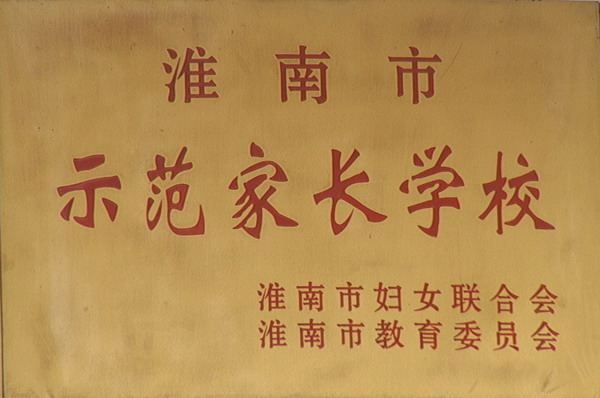 淮南市
示范家长学校
淮南市妇女联合会
淮南市教育委员会